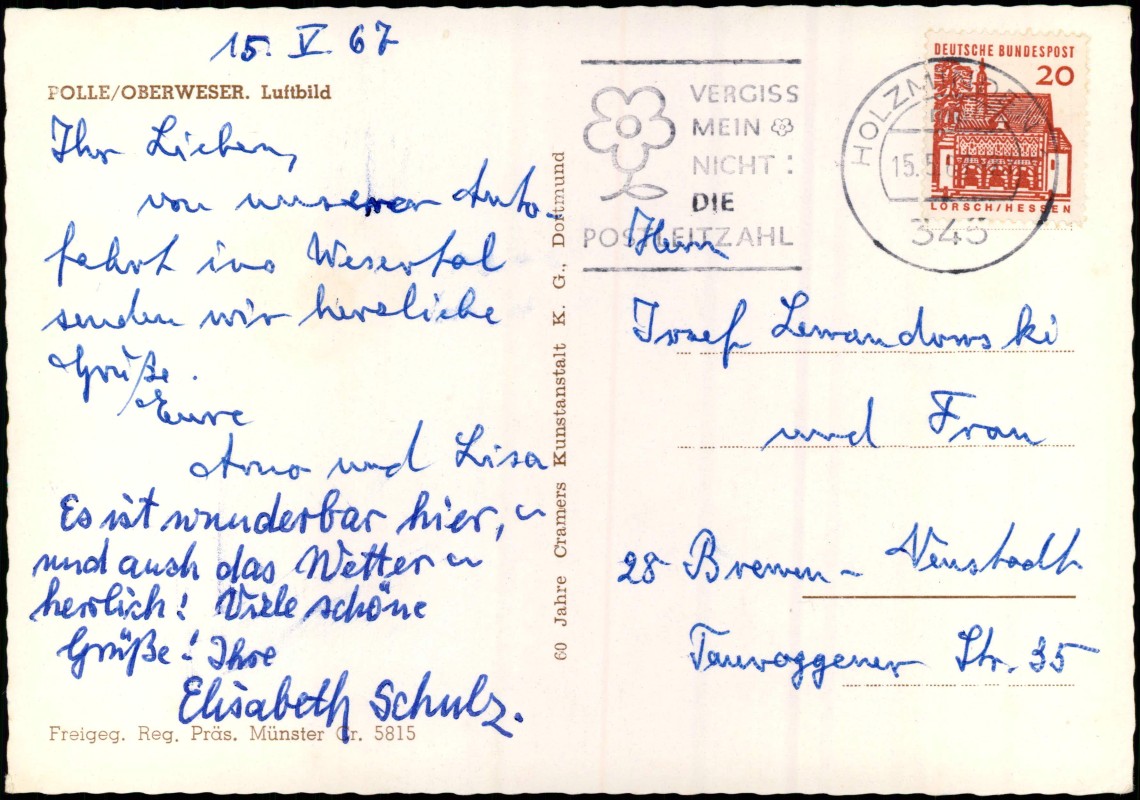 15. V. 67
POLLE/OBERWESER. Luftbild
Ihr Lieben,
von unserer Auto-
fahrt ins Wesertal
senden wir herzliche
Grüße.
Eure
Arno und Lisa
Es ist wunderbar hier,
und auch das Wetter
herrlich! Viele schöne
Grüße! Ihre
Elisabeth Schulz.
Freigeg. Reg. Präs. Münster Cr. 5815
60 Jahre Cramers Kunstanstalt K. G., Dortmund
VERGISS
MEIN
NICHT:
DIE
POSTLEITZAHL
HOLZMINDEN
15.5.
345
DEUTSCHE BUNDESPOST
20
LORSCH/HESSEN
Herrn
Josef Lewandowski
und Frau
28 Bremen - Neustadt
Tauroggener Str. 35